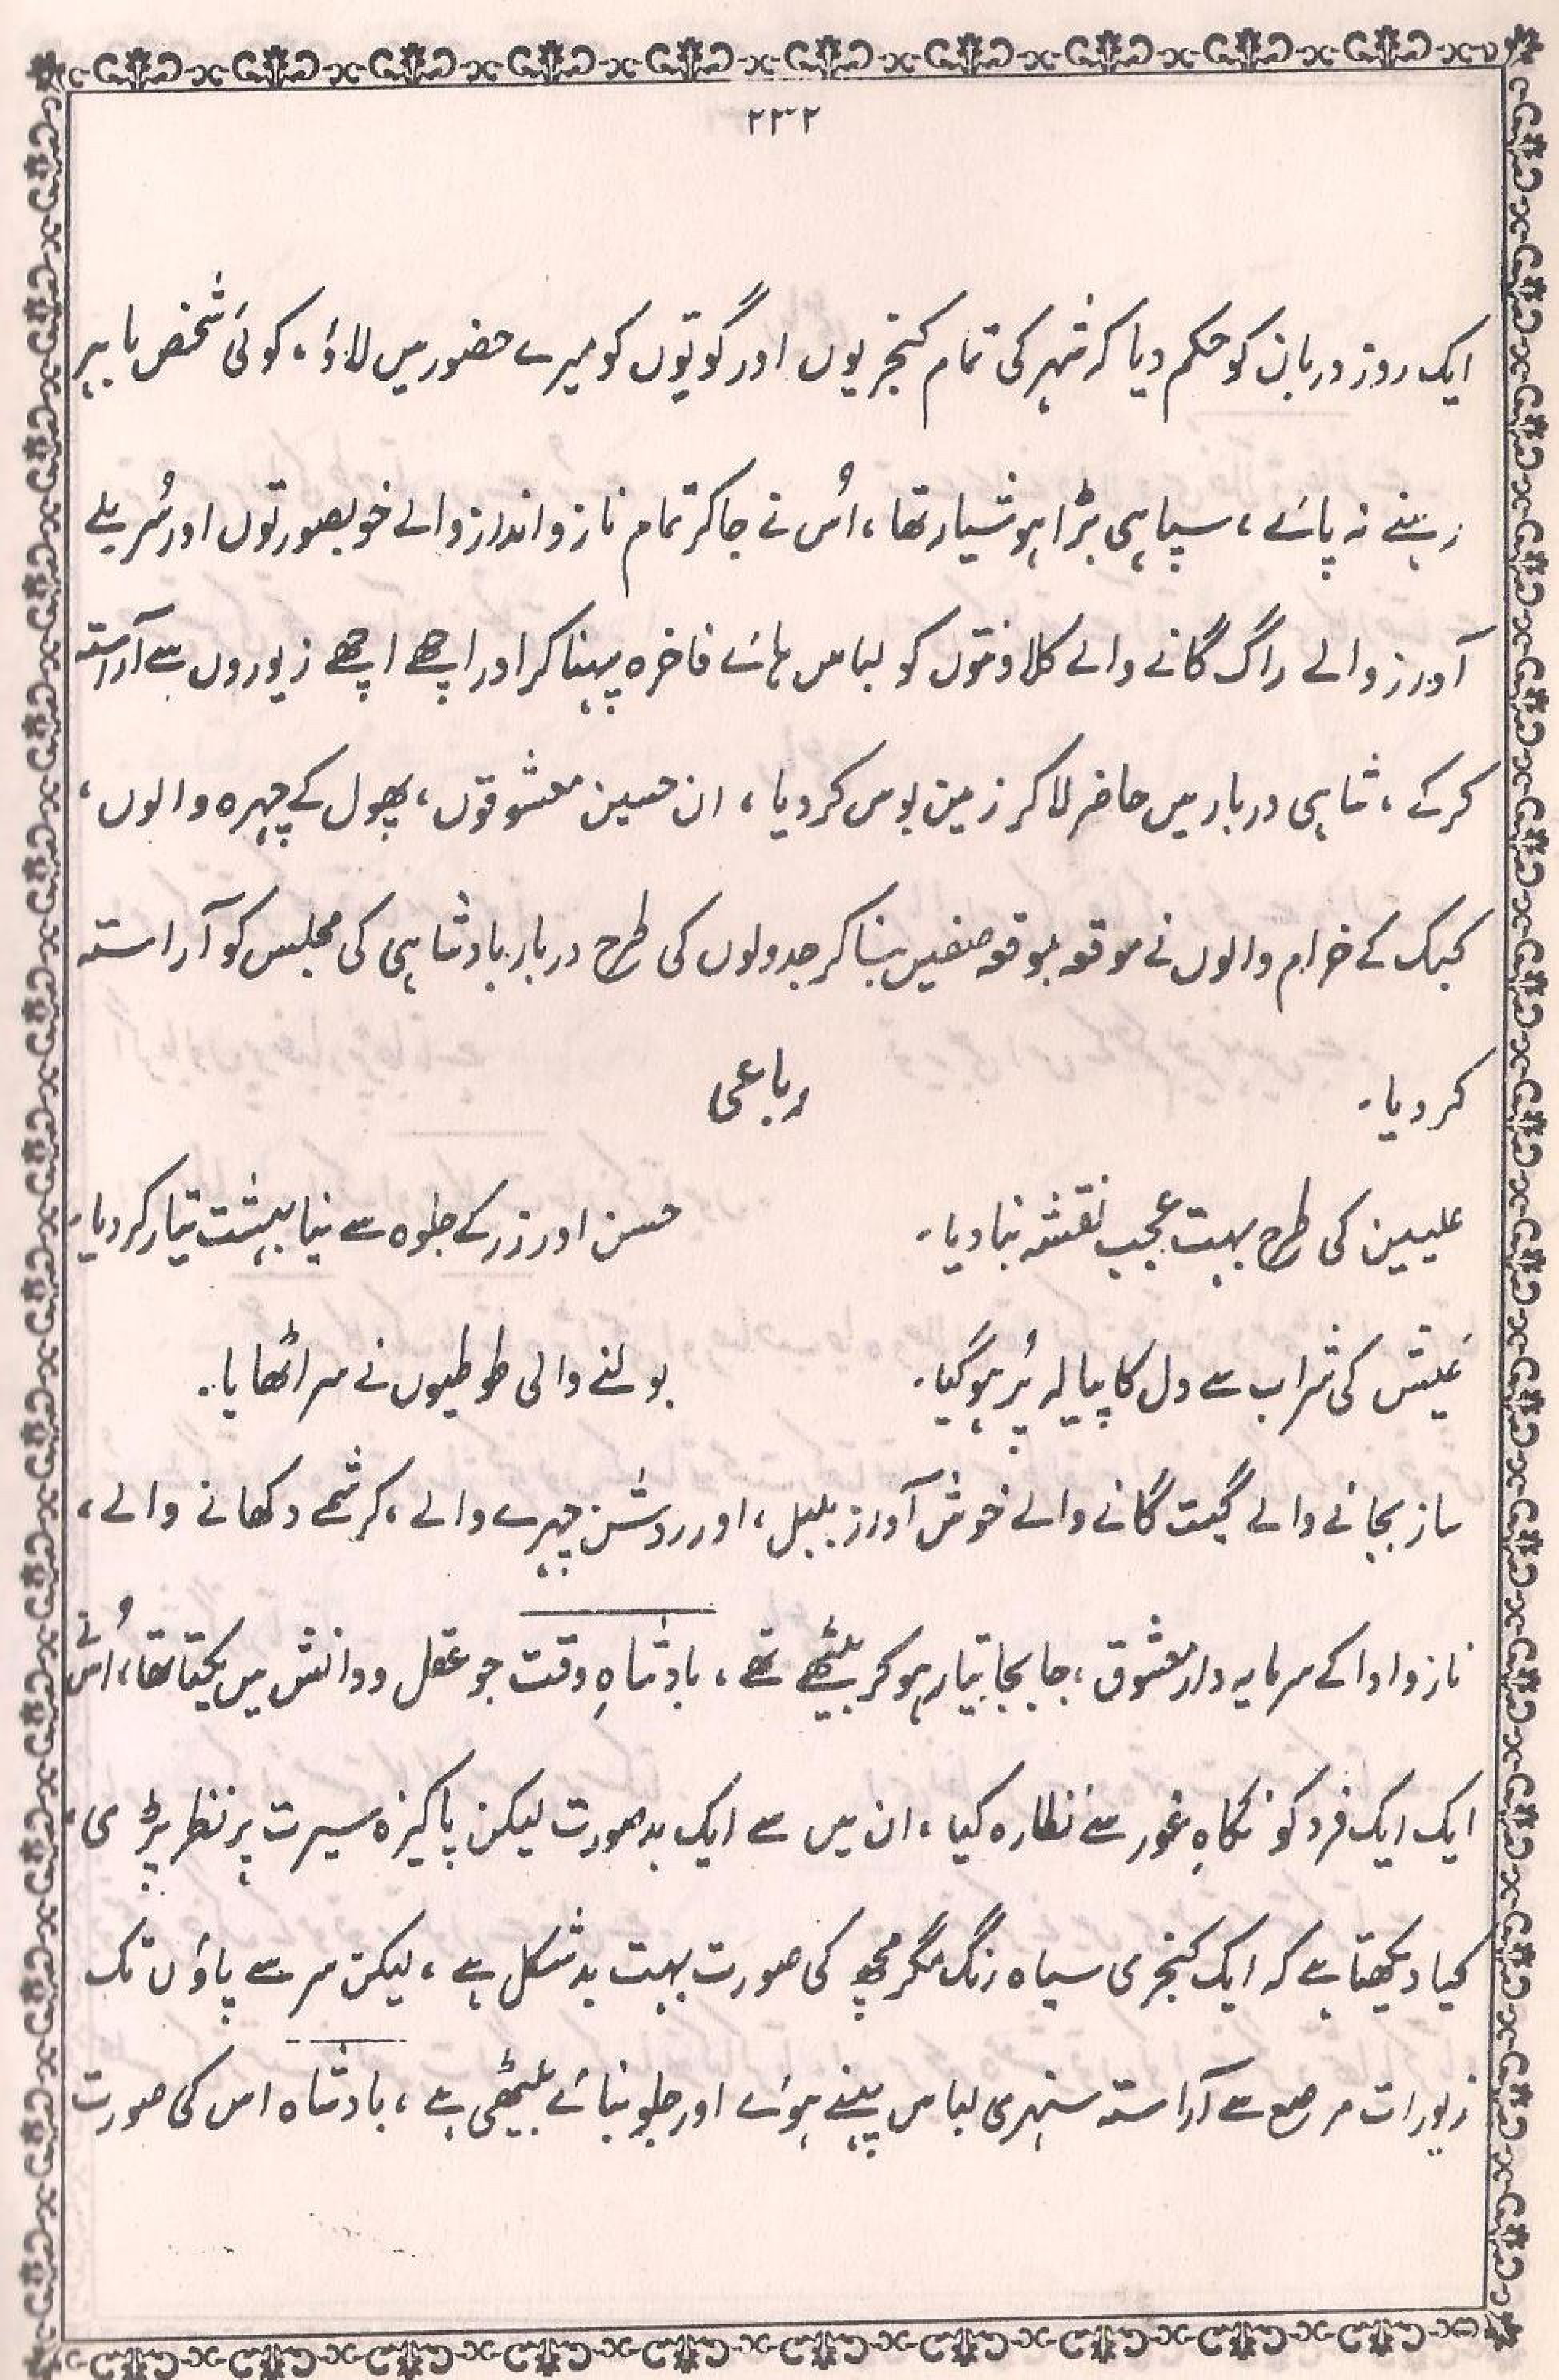 ۲۳۲
ایک روز دربان کو حکم دیا کہ شہر کی تمام کنجریوں اور گویّوں کو میرے حضور میں لاؤ، کوئی شخص باہر
رہنے نہ پائے، سپاہی بڑا ہوشیار تھا، اُس نے جا کر تمام ناز و انداز والے خوبصورتوں اور سُریلے
آواز والے راگ گانے والے کلاونتوں کو لباس ہائے فاخرہ پہنا کر اور اچھے اچھے زیوروں سے آراستہ
کر کے، شاہی دربار میں حاضر لا کر زمین بوس کر دیا، ان حسین معشوقوں، پھول کے چہرہ والوں،
کبک کے خرام والوں نے موقعہ بموقعہ صفیں بنا کر جدولوں کی طرح دربار بادشاہی کی مجلس کو آراستہ
کر دیا۔ رباعی
علیین کی طرح بہت عجیب نقشہ بنا دیا۔ حسن اور زر کے جلوہ سے نیا بہشت تیار کر دیا۔
عیش کی شراب سے دل کا پیالہ پُر ہو گیا۔ بولنے والی طوطیوں نے سر اٹھایا۔
ساز بجانے والے گیت گانے والے خوش آواز بلبل، اور روشن چہرے والے، کرشمے دکھانے والے،
ناز و ادا کے سرمایہ دار معشوق، جا بجا تیار ہو کر بیٹھے تھے، بادشاہِ وقت جو عقل و دانش میں یکتا تھا، اُس نے
ایک ایک فرد کو نگاہِ غور سے نظارہ کیا، ان میں سے ایک بدصورت لیکن پاکیزہ سیرت پر نظر پڑی،
کیا دیکھتا ہے کہ ایک کنجری سیاہ رنگ مگرمچھ کی صورت بہت بدشکل ہے، لیکن سر سے پاؤں تک
زیورات مرصع سے آراستہ سنہری لباس پہنے ہوئے اور جلو بنائے بیٹھی ہے، بادشاہ اس کی صورت